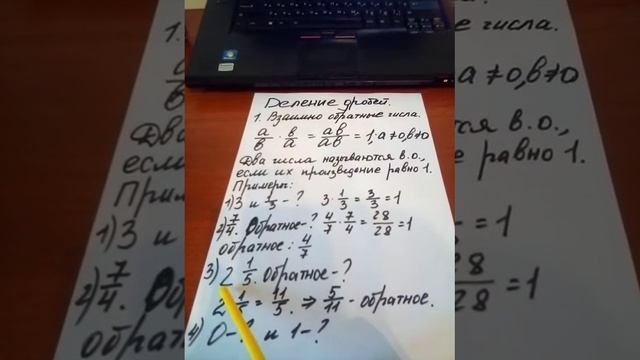 Деление дробей.
1. Взаимно обратные числа.
a/в · в/a = aв/aв = 1, a≠0, в≠0
Два числа называются в.о.,
если их произведение равно 1.
Примеры:
1) 3 и 1/3 - ? 3 · 1/3 = 3/3 = 1
2) 7/4. Обратное - ? 4/7 · 7/4 = 28/28 = 1
Обратное: 4/7
3) 2 1/5. Обратное - ?
2 1/5 = 11/5. ⇒ 5/11 - обратное.
4) 0 - ? и 1 - ?